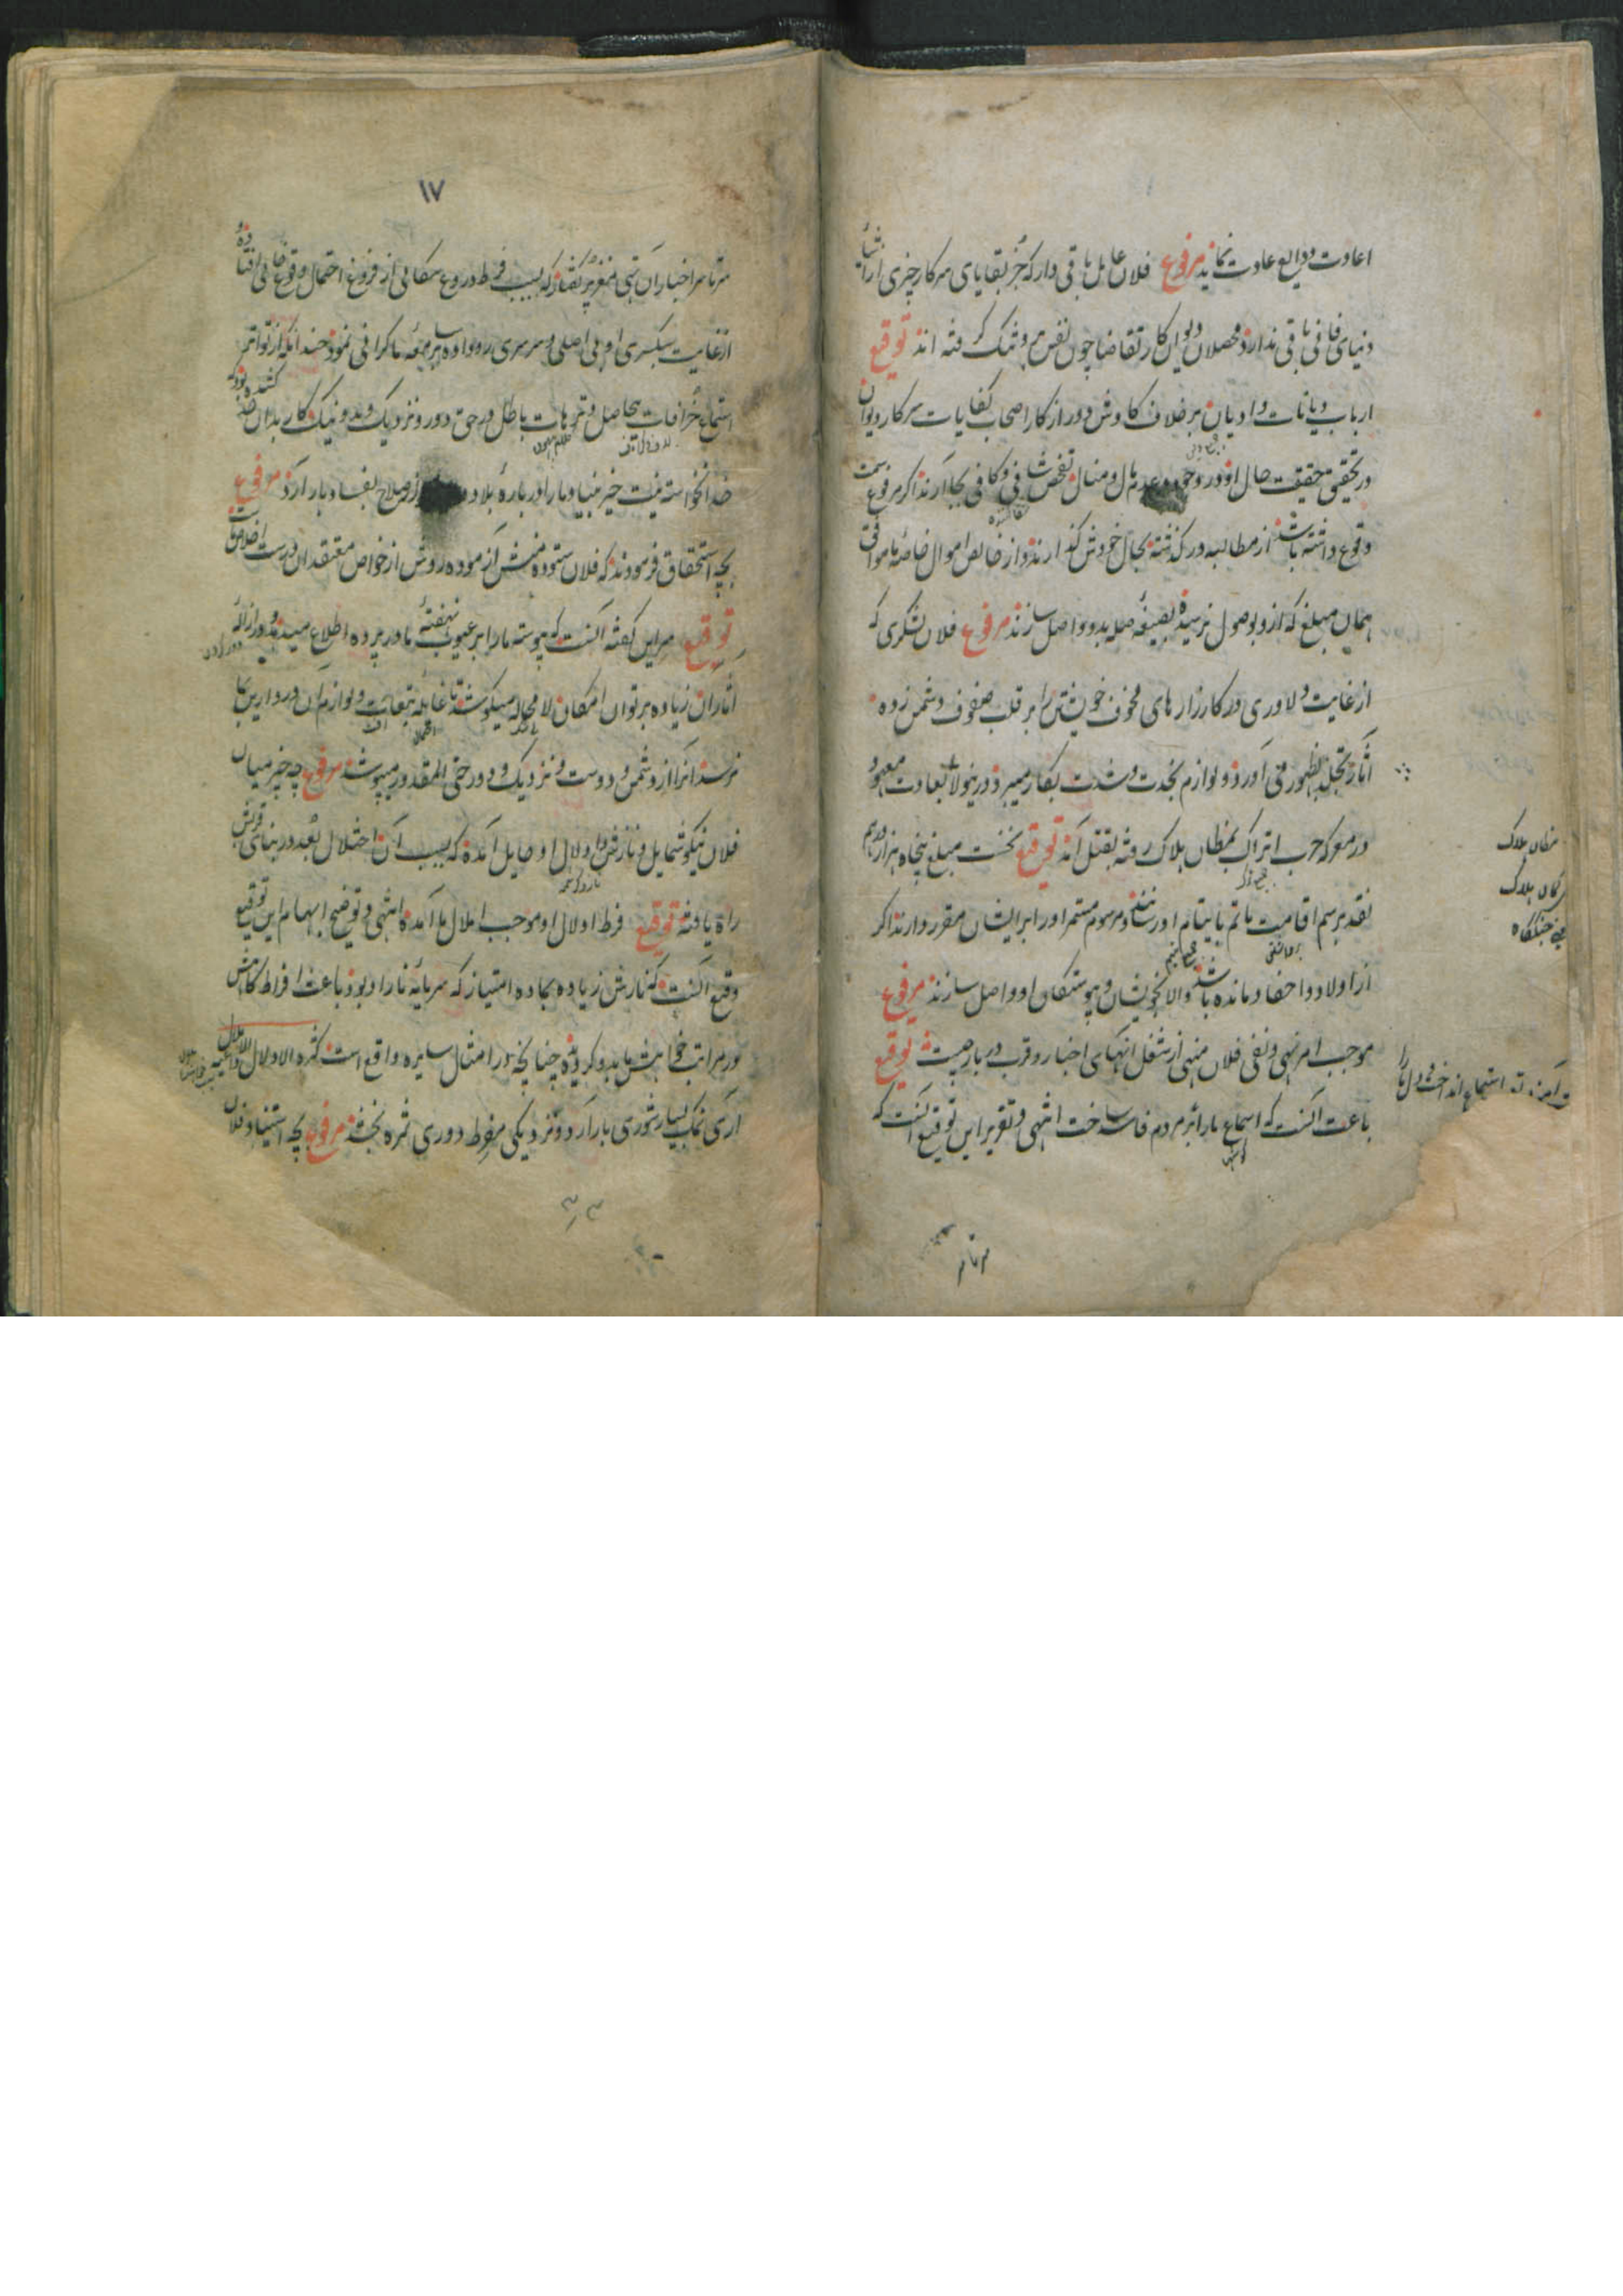 اعادت ودایع عادت نماید مرفوع فلان عامل باقی دار که جز بقایای سرکار چیزی از اشیاء
دنیای فانی باقی ندارد محصلان دیوان کار تقاضا چون نفس برو تنک گرفته اند توقیع
ارباب دیانات و ادیان بر خلاف کاوش دور از کار اصحاب کفایات سرکار دیوان
در تحقیق حقیقت حال او در وجود و عدم مال و منال تفحص شافی و کافی بجا آرند اگر مرفوع سمت
وقوع داشته باشد از مطالبه در گذشته بحال خودش گذارند و از خالص اموال خاصه ما موافق
همان مبلغ که ازو بوصول نرسیده بصیغه صله بدو واصل سازند مرفوع فلان لشکری که
از غایت دلاوری در کارزار های مخوف خویشتن را بر قلب صفوف دشمن زده
آثار تجلد بظهور می آورد و لوازم نجدت و شدت بکار میبرد درینولا بعادت معهود
در معرکه حرب اتراک بمظان هلاک رفته بقتل آمد توقیع نخست مبلغ پنجاه هزار درهم
نقد برسم اقامت ماتم بایتام او رسانند و مرسوم مستمر او را بر ایشان مقرر دارند اگر
از اولاد و احفاد مانده باشد والا بخویشان و پیوستگان او واصل سازند مرفوع
موجب امر نهی و نفی فلان منهی از شغل انهای اخبار و قرب دربار چیست توقیع
باعث آنست که اسماع ما را از مردم فاسد ساخت انتهی و تقریر این توقیع آنست که
مظان هلاک
مکان هلاک
یعنی جنگگاه
سرتاسر
۱۷
سرتاسر اخبار آن تهی مغز پر گفتار که بسبب فرط دروغ سگالی از فروغ احتمال وقوع خالی افتاده
از غایت سبکسری او بی اصلی و سرسری روداده بر سامعه ما گرانی نمود چندانکه از تواتر
استماع خرافات بیحاصل و ترهات باطل در حق دور و نزدیک و بد و نیک کار بدان کشیده بود که
خدا نخواسته نیت خیر بنیاد ما را در باره بلاد و از صلاح بفساد بار آرد مرفوع
بچه استحقاق فرمودند که فلان ستوده منش آزموده روش از خواص معتقدان درست اخلاص ماست
توقیع سر این گفته آنست که پیوسته ما را بر عیوب نهفته ما در پرده اطلاع میدهد و در ازاله
آثار آن زیاده بر توان امکان لا محاله میکوشد تا غایله تبعات و لوازم آن در دارین بما
نرسد آنرا از دشمن و دوست و نزدیک و دور حتی المقدور میپوشد مرفوع چه چیز میان
فلان نیکو شمایل و نازش دلال او حایل آمده که بسبب آن اختلال بعد در بنای قربش
راه یافته توقیع فرط ادلال او موجب املال ما آمده انتهی و توضیح ابهام این توقیع
وقیع آنست که نازش زیاده بماده امتیاز که سرمایه ناز او بود باعث افراط کاهش
در مراتب خواهش ما بدو گردیده چنانچه در امثال سایره واقع است کثرة الادلال داعیة الاملال
آری نمک بسیار شوری بار آرد و نزدیکی مفرط دوری ثمره بخشد مرفوع بچه استیناد فلان